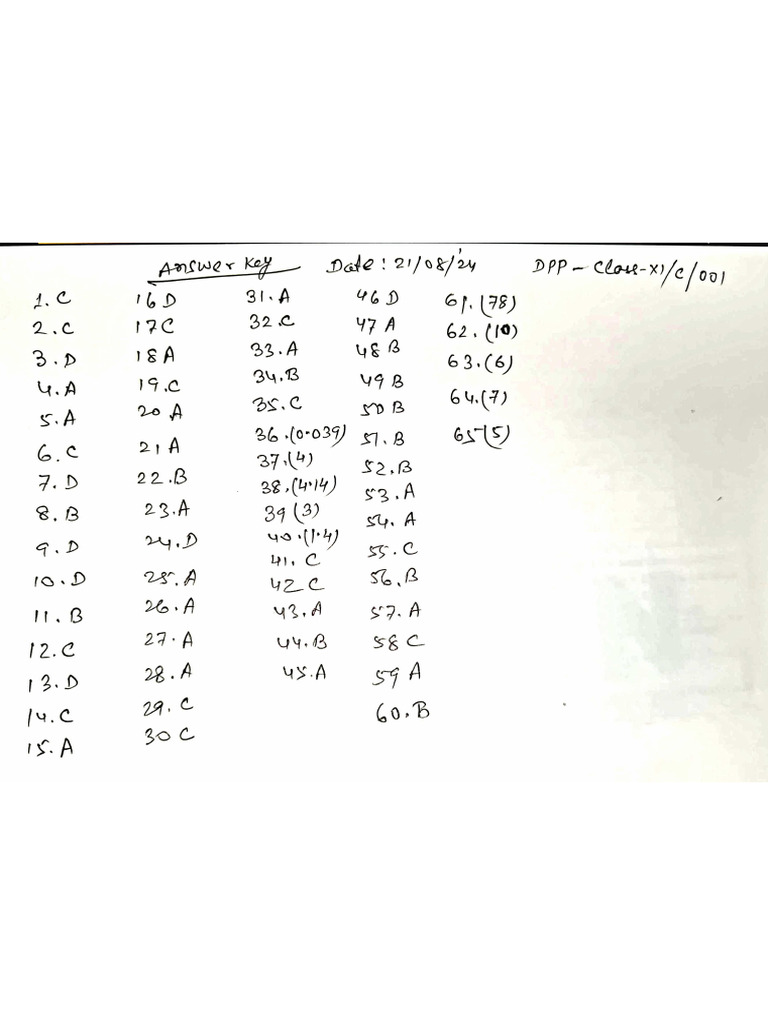 Answer Key Date: 21/08/24 DPP - Class-XI/C/001
1. C
2. C
3. D
4. A
5. A
6. C
7. D
8. B
9. D
10. D
11. B
12. C
13. D
14. C
15. A
16 D
17 C
18 A
19. C
20 A
21 A
22. B
23. A
24. D
25. A
26. A
27. A
28. A
29. C
30 C
31. A
32. C
33. A
34. B
35. C
36. (0.039)
37. (4)
38. (4.14)
39 (3)
40. (1.4)
41. C
42 C
43. A
44. B
45. A
46 D
47 A
48 B
49 B
50 B
51. B
52. B
53. A
54. A
55. C
56. B
57. A
58 C
59 A
60. B
61. (78)
62. (10)
63. (6)
64. (7)
65 (5)